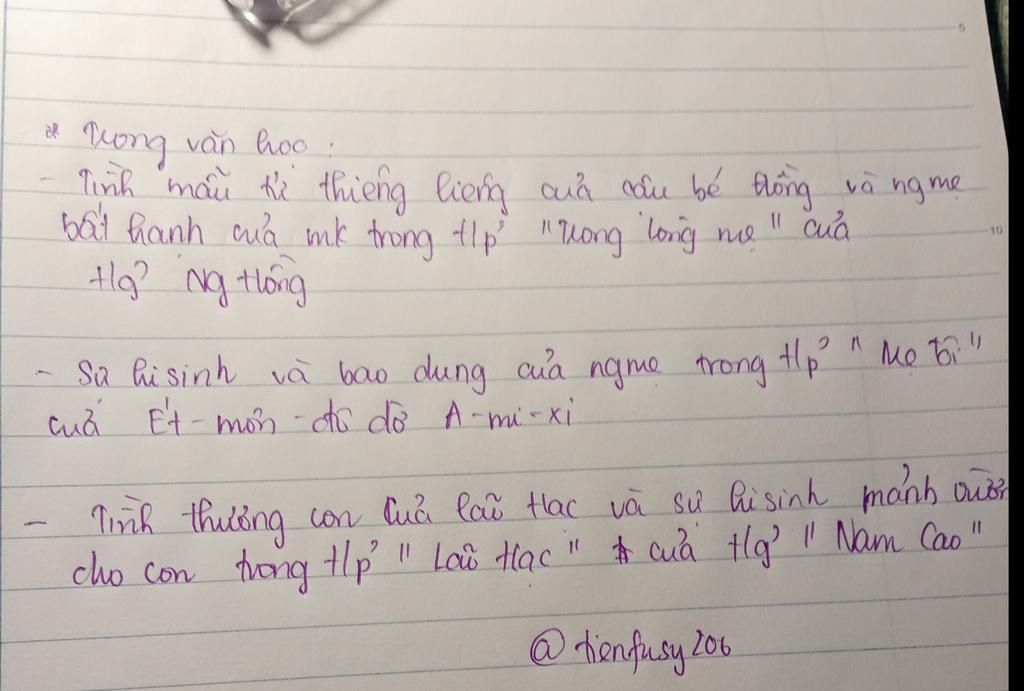 * Trong văn học :
- Tình mẫu tử thiêng liêng của cậu bé Hồng và ng mẹ
bất hạnh của mk trong t/p' "Trong lòng mẹ" của
t/g' Ng Hồng
- Sự hi sinh và bao dung của ng mẹ trong t/p' "Mẹ tôi"
của Ét-môn-đô đờ A-mi-xi
- Tình thương con của Lão Hạc và sự hi sinh mảnh vườn
cho con trong t/p' "Lão Hạc" của t/g' "Nam Cao"
@tienfusy206
5
10